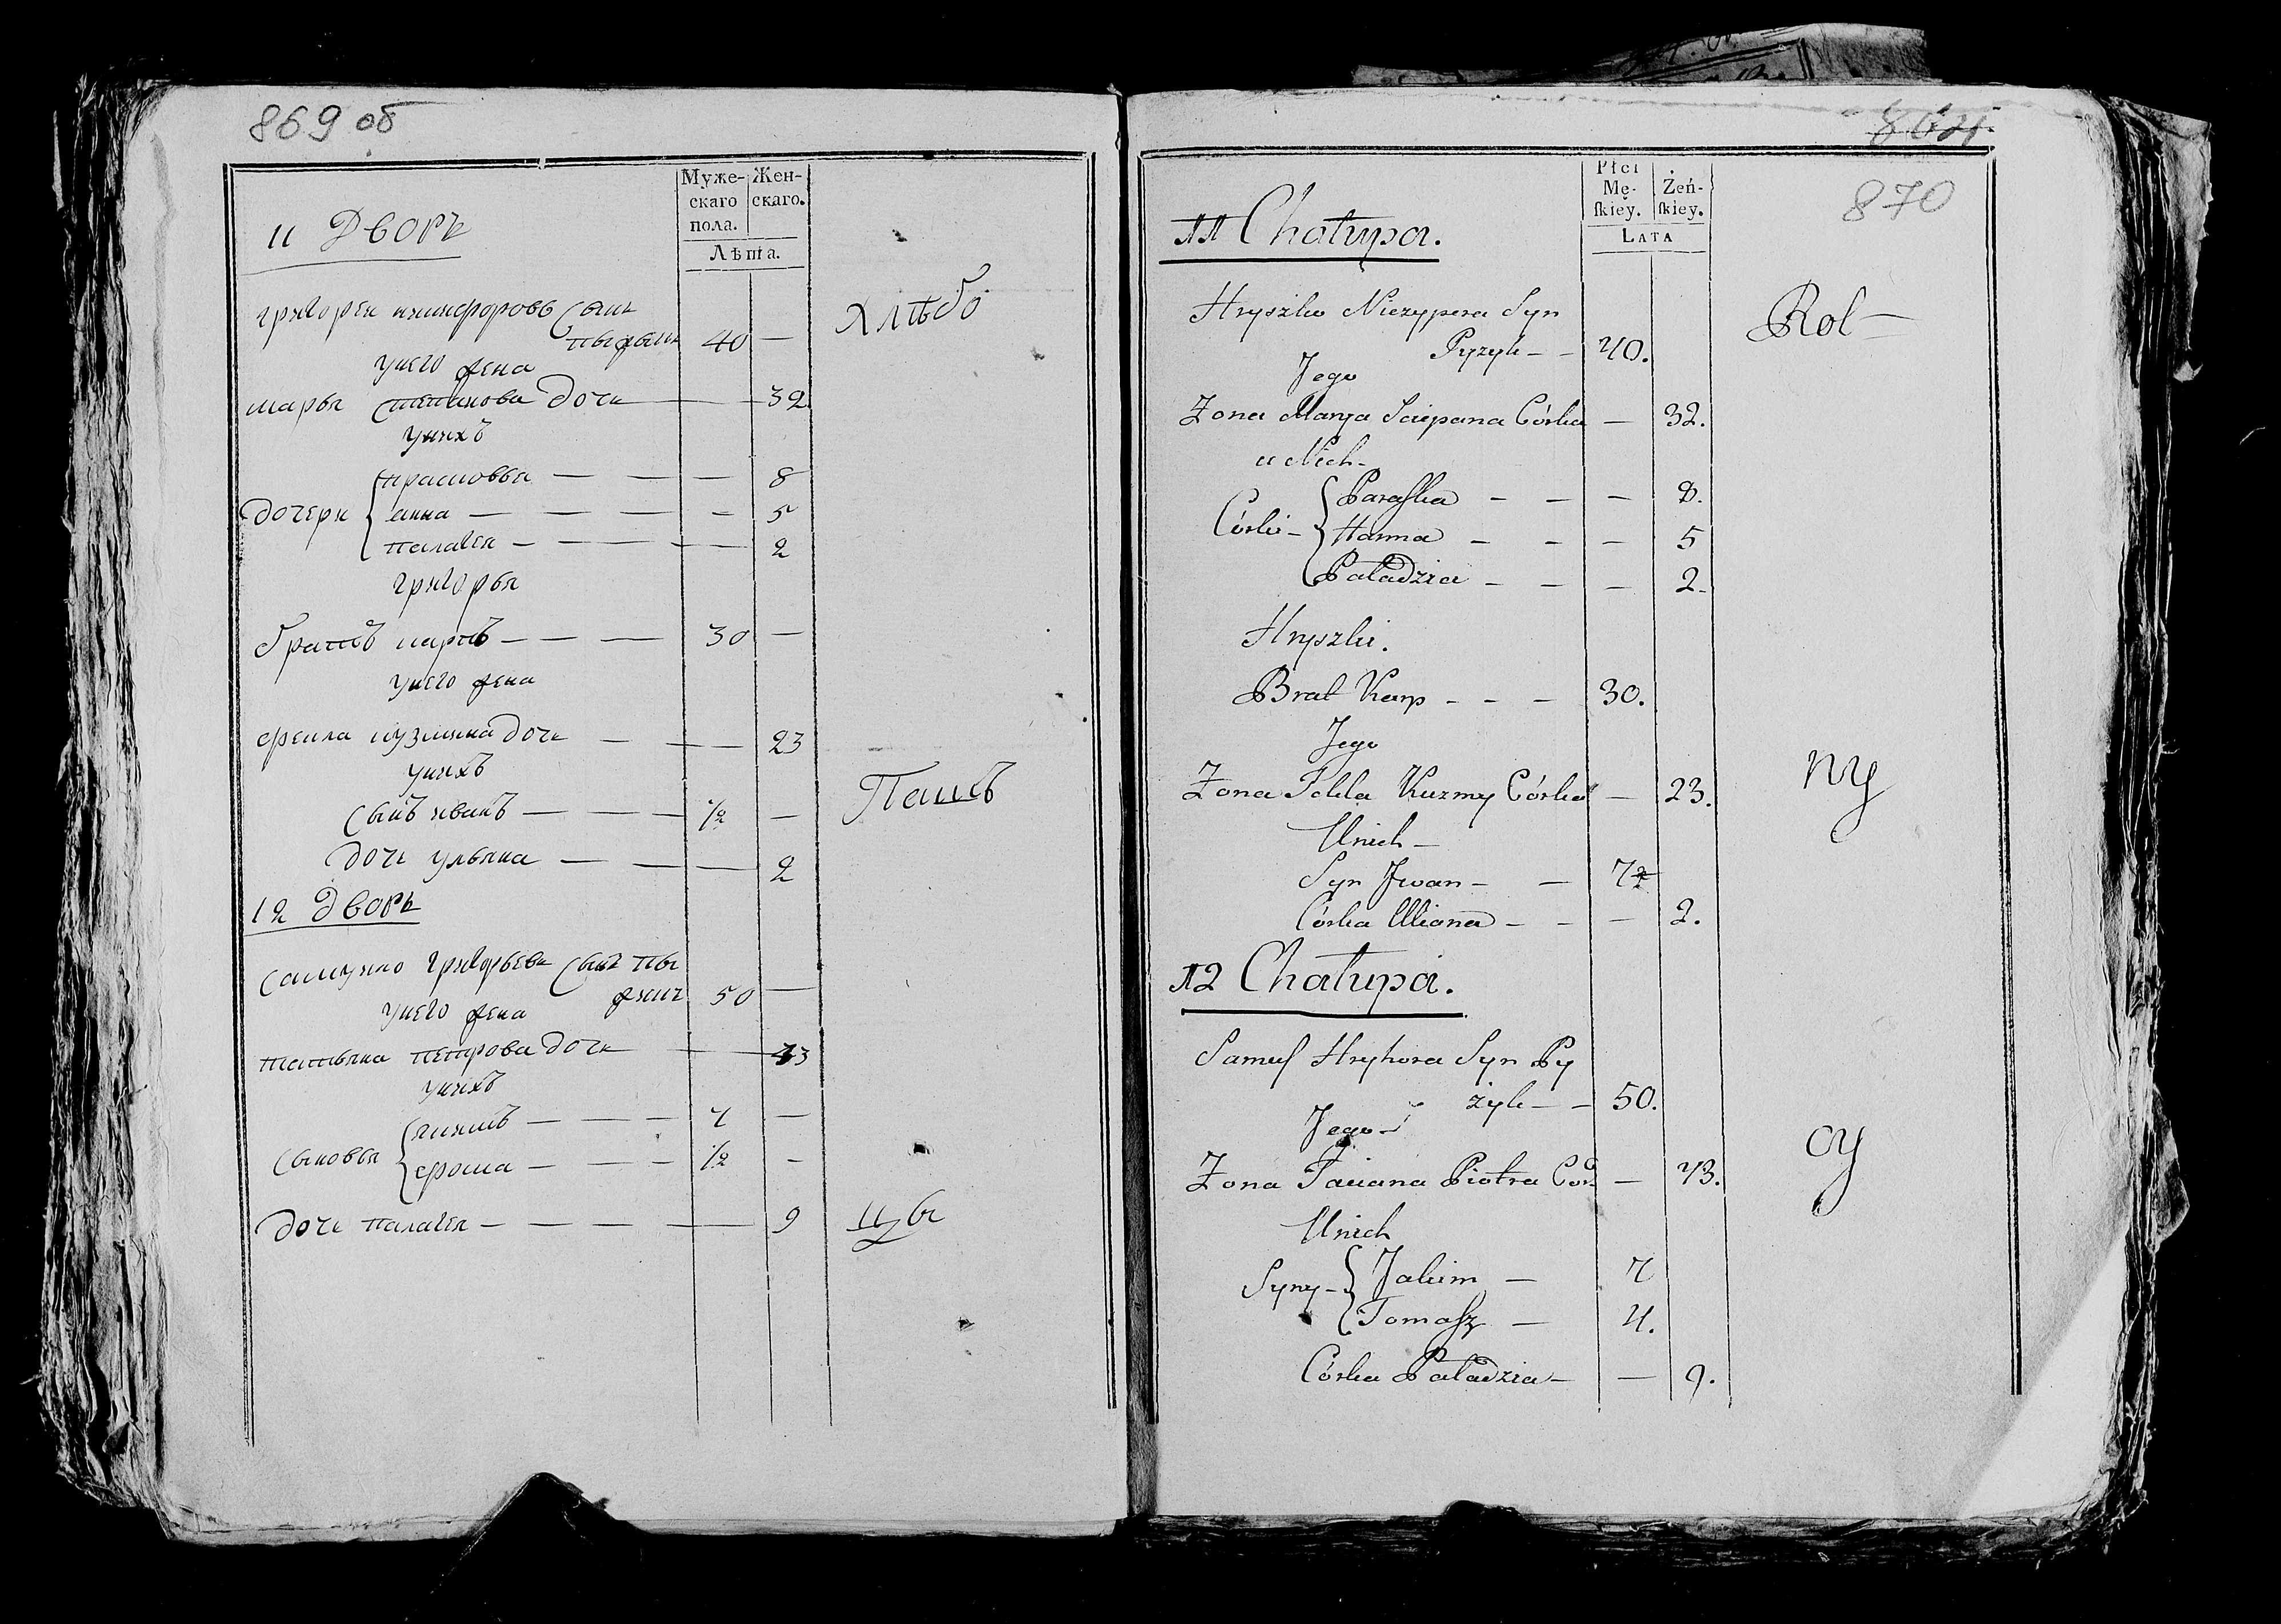 869 об
Муже-
скаго
пола.
Жен-
скаго.
Лѣта.
11 Дворъ
григореи никифоровъ сынъ
пыжикъ 40 —
Хлѣбо
у него жена
марья степанова дочь — 32
у нихъ
дочери
прасковья — — — 8
анна — — — — 5
палагея — — — 2
григорья
братъ карпъ — — — 30 —
у него жена
фекла кузмина дочь — — — 23
у нихъ
Пашъ
сынъ иванъ — — — 1/2 —
дочь ульяна — — — 2
12 дворъ
самуило григорьевъ сынъ пы
жикъ 50 —
у него жена
татьяна петрова дочь — 43
у нихъ
сыновья
якимъ — — — 7 —
фома — — — 1/2 —
дочь палагея — — — — 9
цы
864
870
Płci
Mę-
ſkiey.
Żeń-
ſkiey.
LATA
11 Chałupa.
Hryszko Niczypera Syn
Pyzyk — — 40.
Rol—
Jego
Zona Marya Sciepana Córka — 32.
u Nich—
Córki —
Paraſka — — — 8.
Hanna — — — 5
Paładzia — — — 2.
Hryszki.
Brat Karp — — — 30.
Jego
ny
Zona Tekla Kuzmy Córka — 23.
Unich —
Syn Jwan — — 1/2
Córka Uliana — — — 2.
12 Chałupa.
Samuſ Hryhora Syn Py
żyk — — 50.
Jego —
oy
Zona Taciana Piotra Cór — 43.
Unich
Syny —
Jakim — 7
Tomaſz — 4.
Córka Paładzia — — 9.